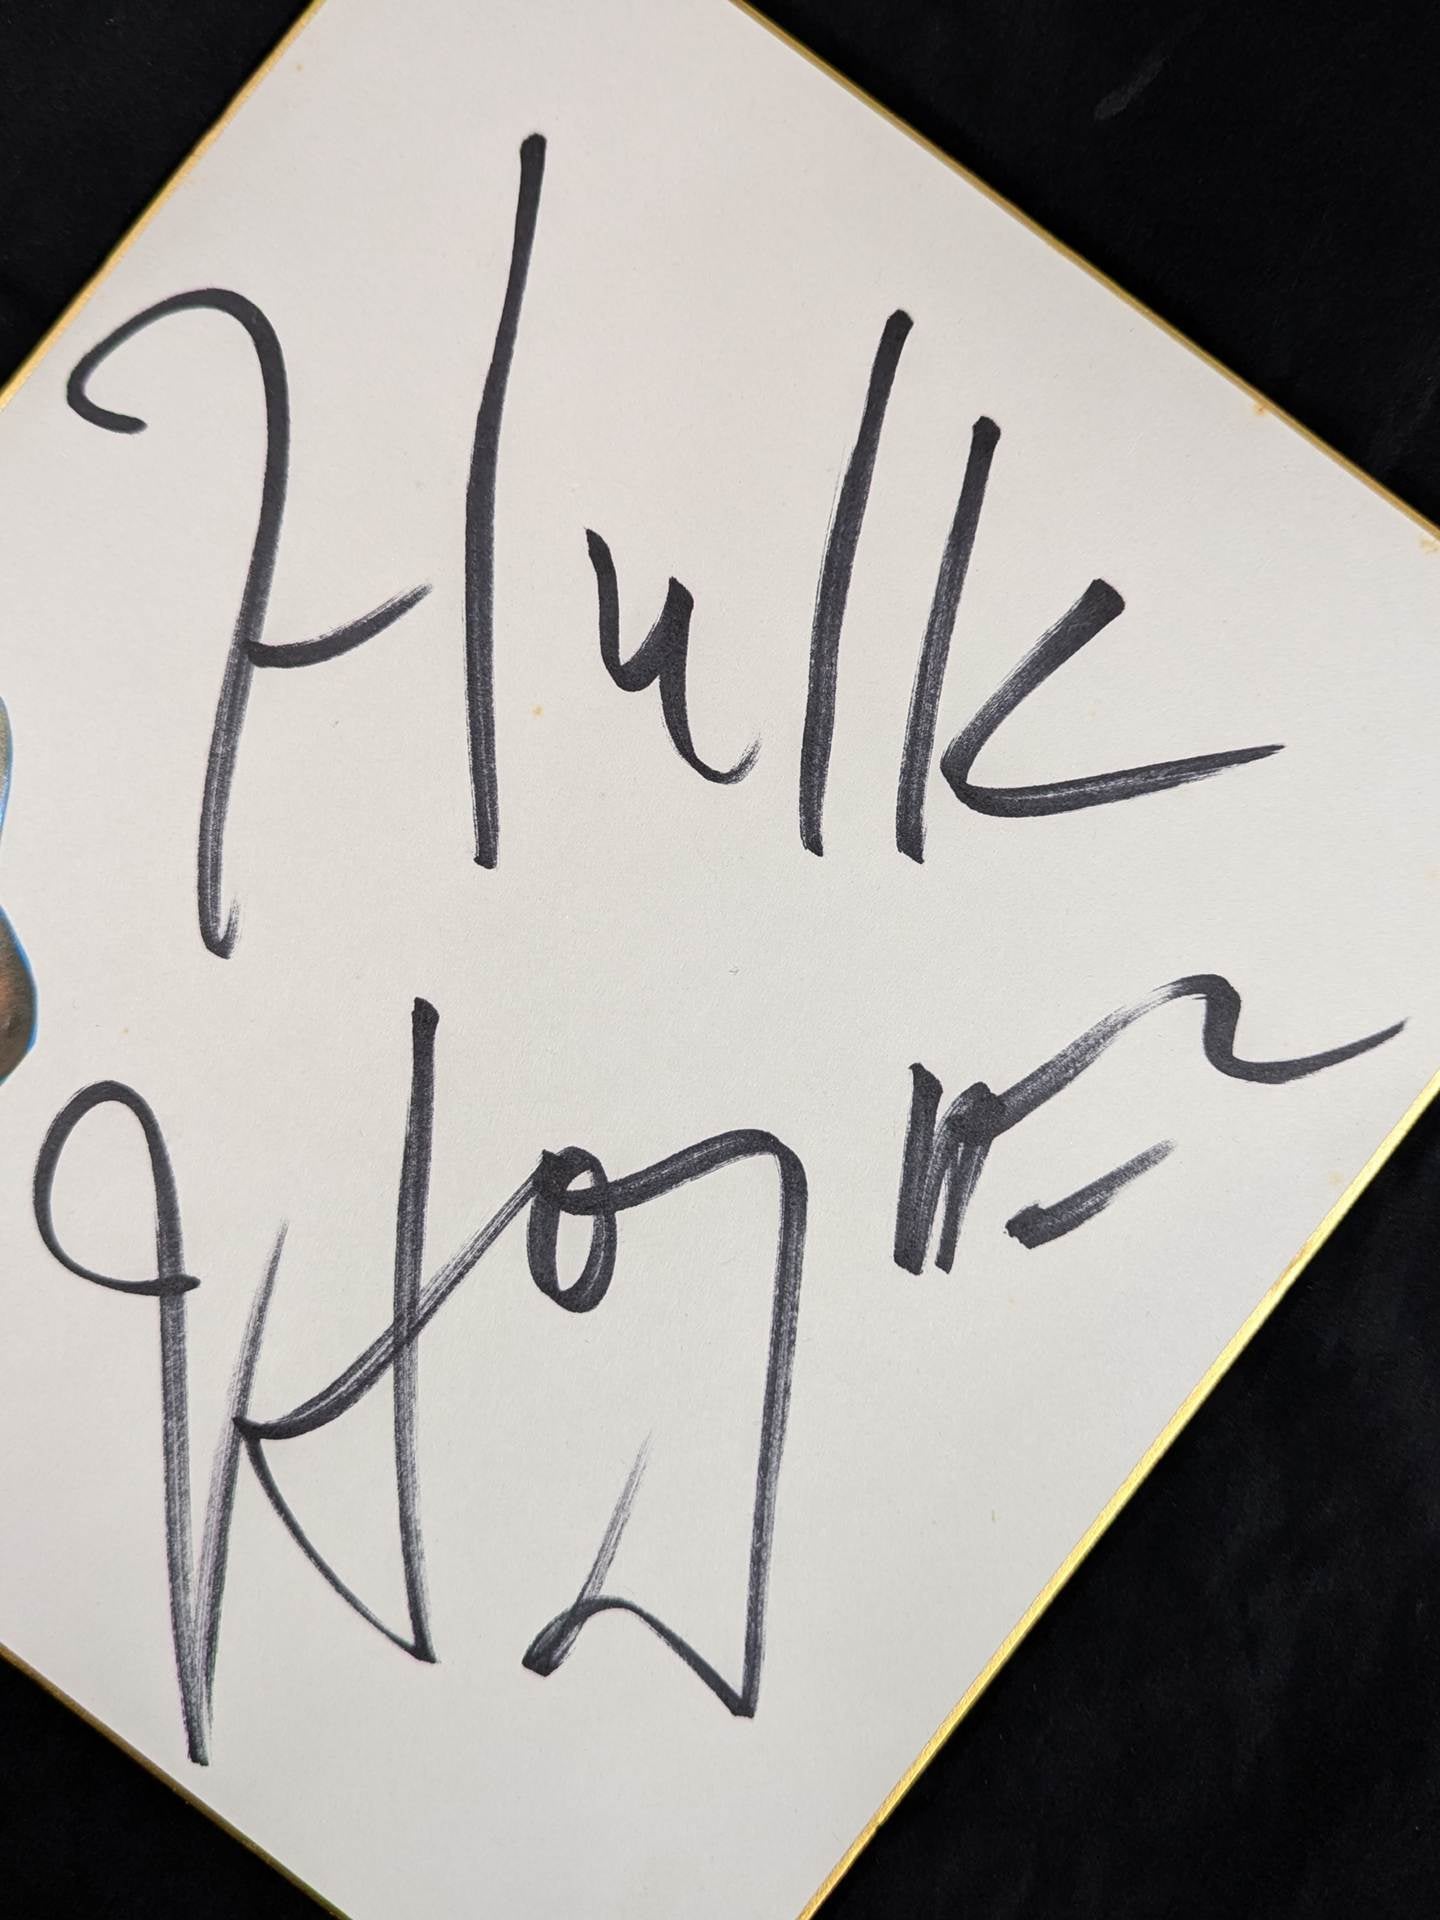 Hulk
Hogan